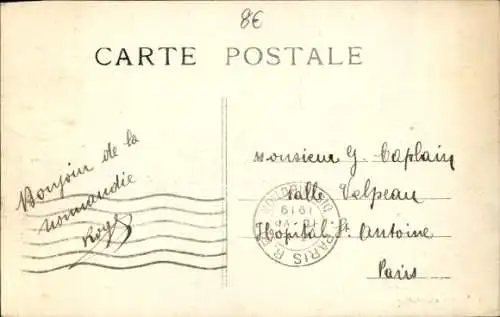 8€
CARTE POSTALE
Bonjour de la
Normandie
Roys
Monsieur G. Caplain
Salle Velpeau
Hôpital St. Antoine
Paris
PARIS R.
DISTRIBUTION
1919